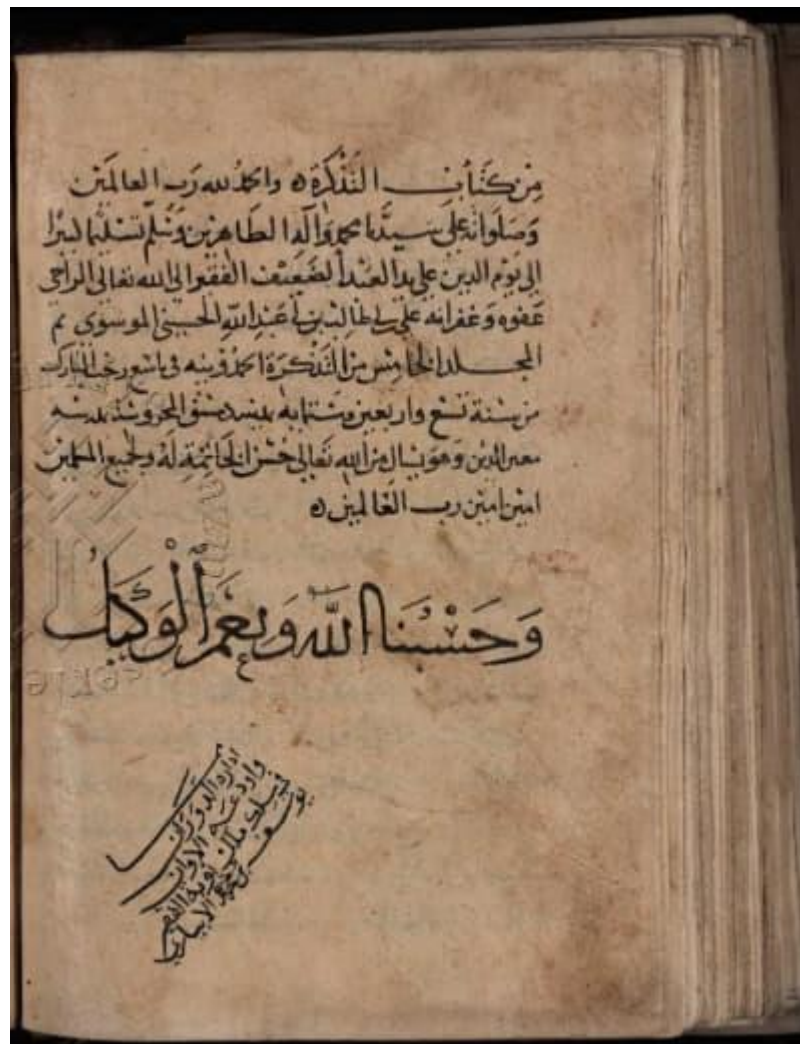 من كتاب التذكرة ه والحمد لله رب العالمين
وصلواته على سيدنا محمد وآله الطاهرين وسلم تسليما كثيرا
الى يوم الدين على يد العبد الضعيف الفقير الى الله تعالى الراجي
عفوه وغفرانه علي بن ابي طالب بن عبد الله الحسيني الموسوي تم
المجلد الخامس من التذكرة الحمدونيه في عاشور رجب المبارك
من سنة تسع واربعين وستمايه بدمشق المحروسه بمدرسه
معين الدين وهو يسال من الله تعالى حسن الخاتمة له ولجميع المسلمين
امين امين رب العالمين ه
وحسبنا الله ونعم الوكيل
في سلك ملك
يوسف